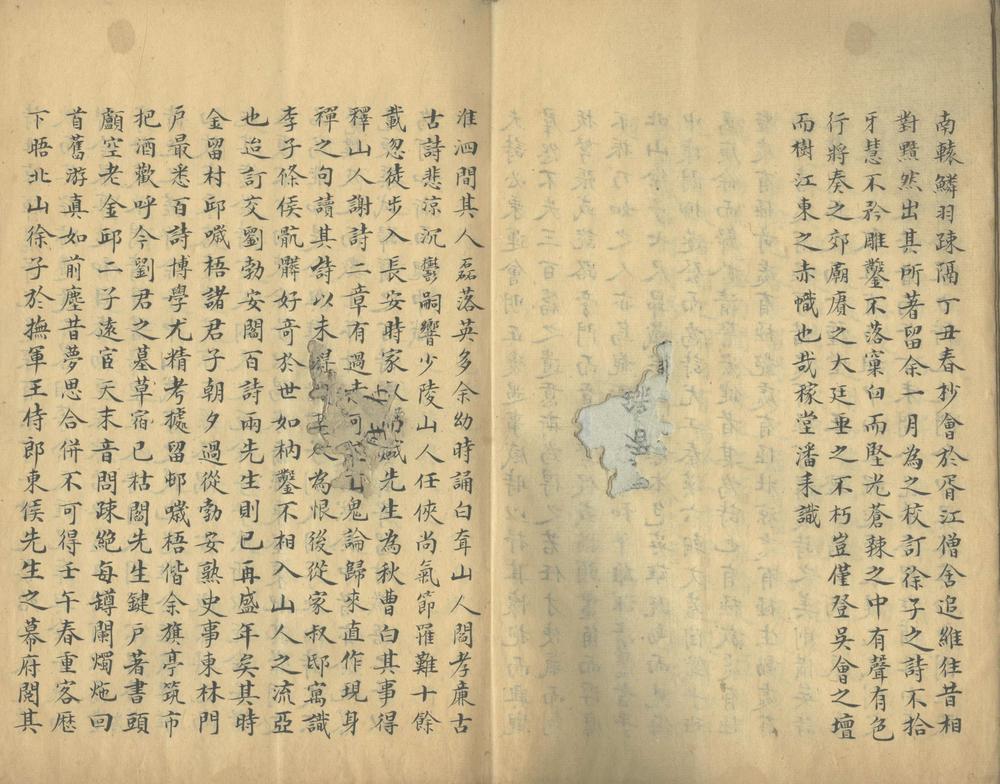 南轅鱗羽疎隔丁丑春杪會於胥江僧舍追維往昔相
對黯然出其所著留余一月為之校訂徐子之詩不拾
牙慧不矜雕鑿不落窠臼而堅光蒼辣之中有聲有色
行將奏之郊廟賡之大廷垂之不朽豈僅登吳會之壇
而樹江東之赤幟也哉稼堂潘耒識
淮泗間其人磊落英多余幼時誦白耷山人閻孝廉古
古詩悲涼沉鬱嗣響少陵山人任俠尚氣節罹難十餘
載忽徒步入長安時家以 先生為秋曹白其事得
釋山人謝詩二章有過 可 鬼論歸來直作現身
禪之句讀其詩以未得 為恨後從家叔邸寓識
李子條侯骯髒好奇於世如枘鑿不相入山人之流亞
也迨訂交劉勃安閻百詩兩先生則已再盛年矣其時
金留村邱嗛梧諸君子朝夕過從勃安熟史事東林門
戶最悉百詩博學尤精考據留邨嗛梧偕余旗亭筑市
把酒歡呼今劉君之墓草宿已枯閻先生鍵戶著書頭
顱空老金邱二子遠宦天末音問疎絕每罇闌燭灺回
首舊游真如前塵昔夢思合併不可得壬午春重客歷
下晤北山徐子於撫軍王侍郎東侯先生之幕府閱其